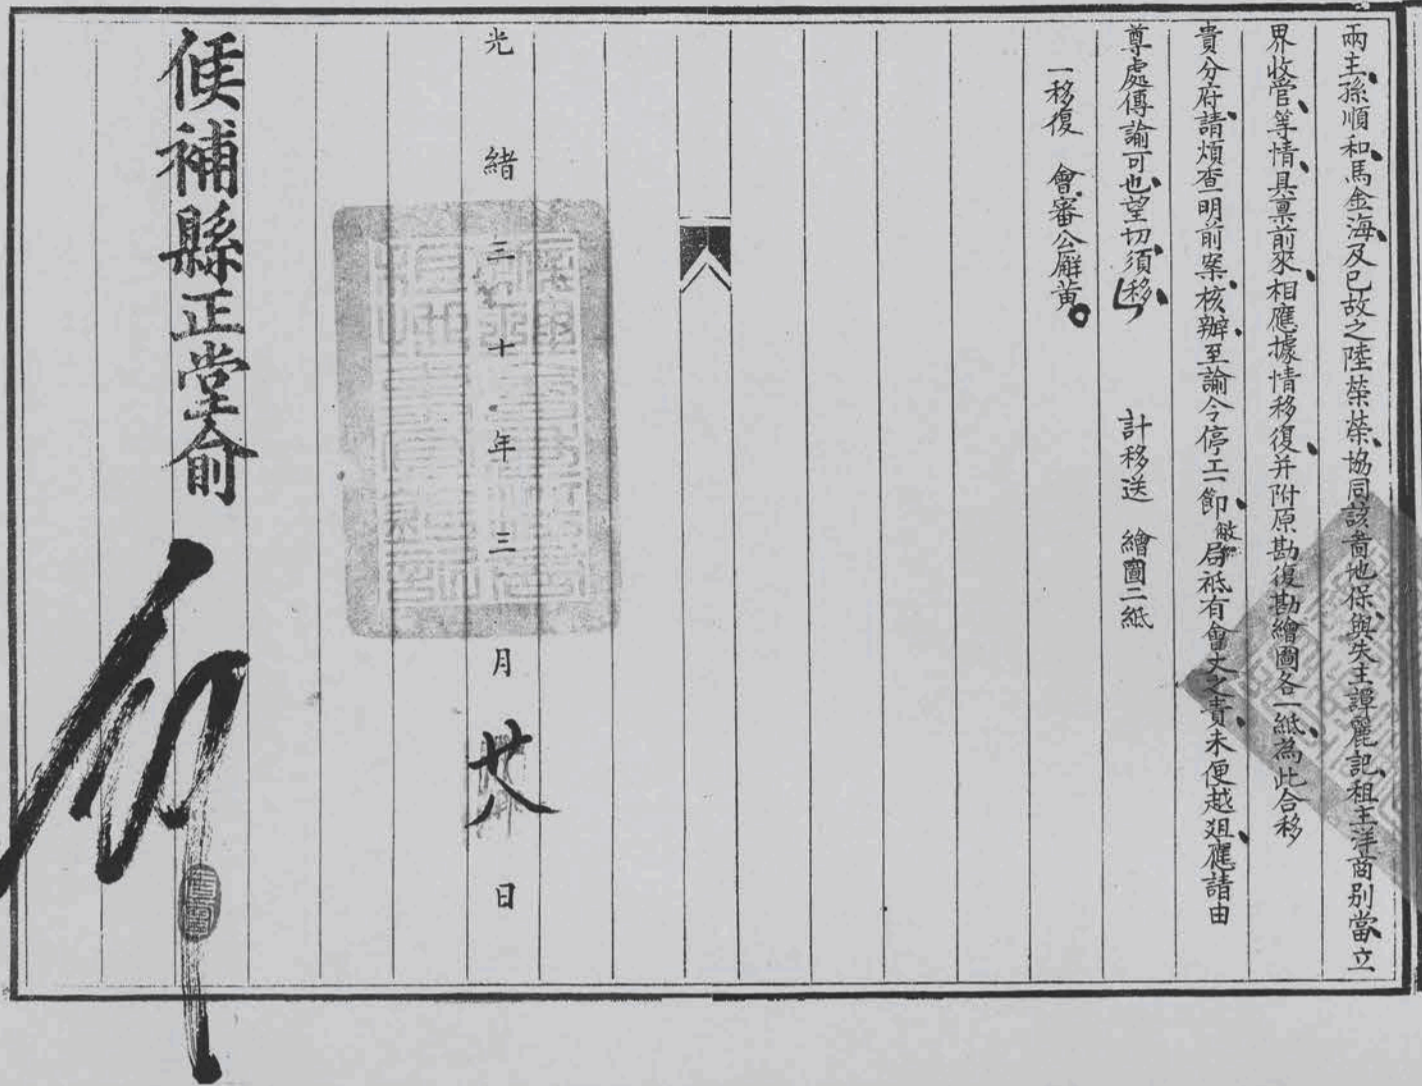 兩主孫順和馬金海及已故之陸榮榮協同該啚地保與失主譚麗記租主洋商別當立
界收管等情具禀前來相應據情移復并附原勘復勘繪圖各一紙為此合移
貴分府請煩查明前案核辦至諭令停工一節敝局祗有會丈之責未便越俎應請由
尊處傳諭可也望切須移
計移送 繪圖二紙
一移復 會審公廨黃
光緒三十年三月廿八日
候補縣正堂俞